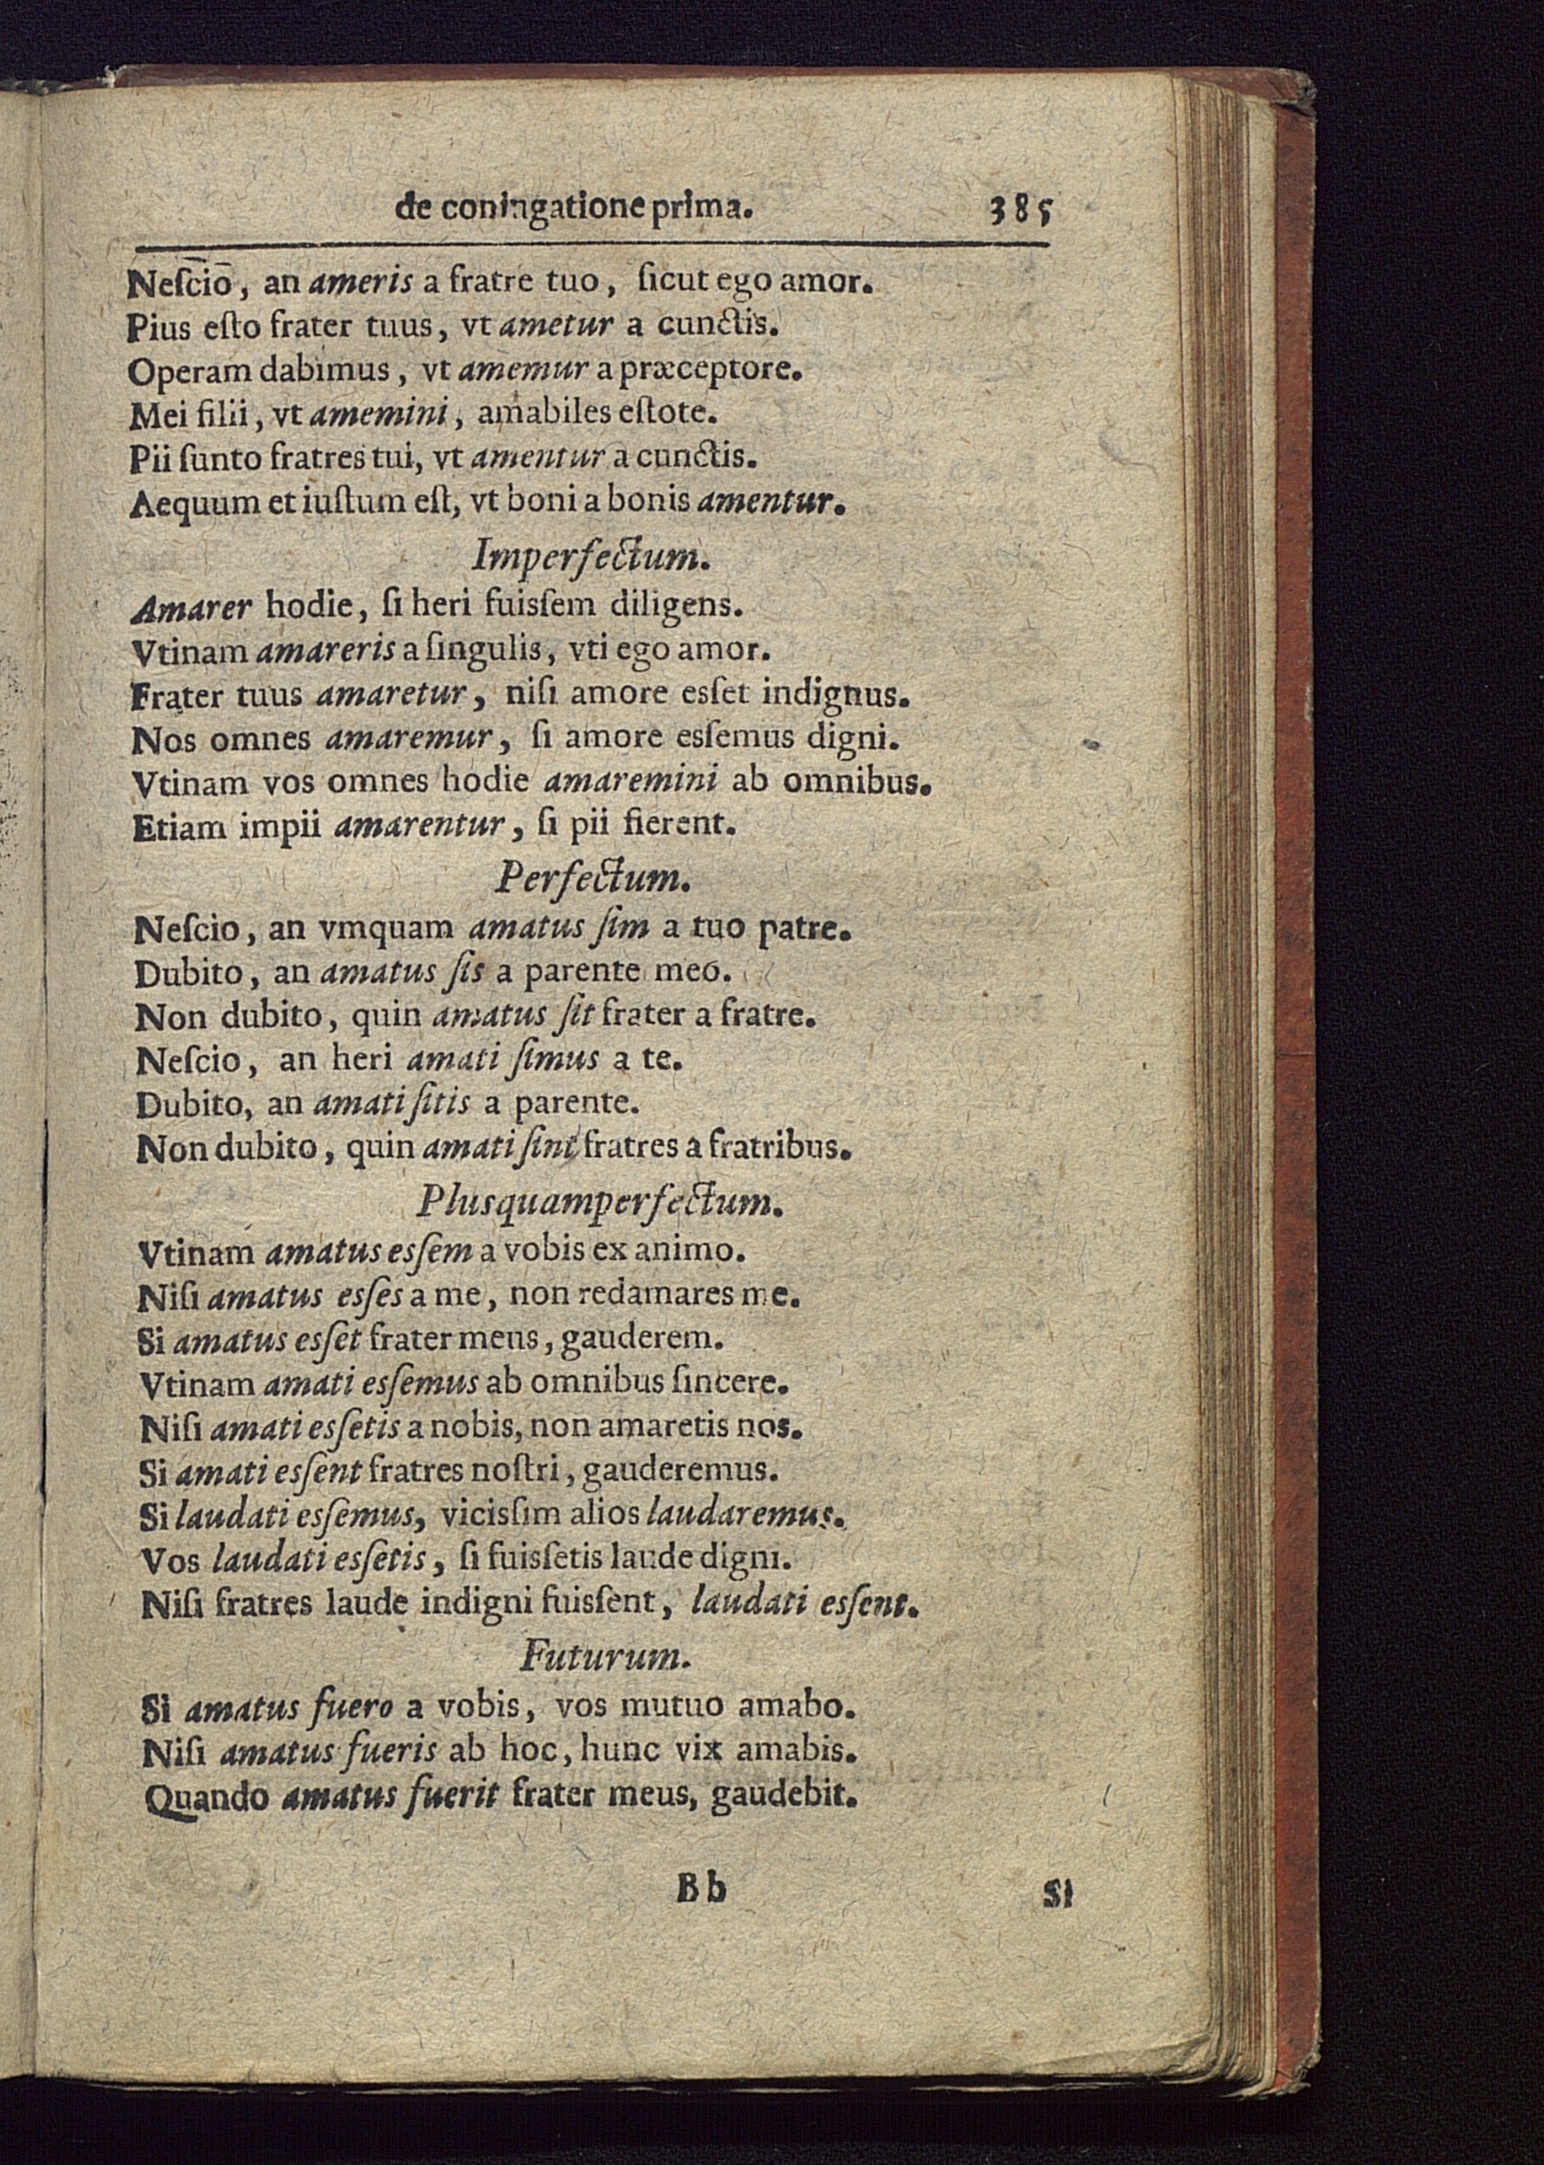 de coniugatione prima. 385
Neſcio, an ameris a fratre tuo, ſicut ego amor.
Pius eſto frater tuus, vt ametur a cunctis.
Operam dabimus, vt amemur a præceptore.
Mei filii, vt amemini, amabiles eſtote.
Pii ſunto fratres tui, vt amentur a cunctis.
Aequum et iuſtum eſt, vt boni a bonis amentur.
Imperfectum.
Amarer hodie, ſi heri fuisſem diligens.
Vtinam amareris a ſingulis, vti ego amor.
Frater tuus amaretur, niſi amore esſet indignus.
Nos omnes amaremur, ſi amore esſemus digni.
Vtinam vos omnes hodie amaremini ab omnibus.
Etiam impii amarentur, ſi pii fierent.
Perfectum.
Neſcio, an vmquam amatus ſim a tuo patre.
Dubito, an amatus ſis a parente meo.
Non dubito, quin amatus ſit frater a fratre.
Neſcio, an heri amati ſimus a te.
Dubito, an amati ſitis a parente.
Non dubito, quin amati ſint fratres a fratribus.
Plusquamperfectum.
Vtinam amatus esſem a vobis ex animo.
Niſi amatus esſes a me, non redamares me.
Si amatus esſet frater meus, gauderem.
Vtinam amati esſemus ab omnibus ſincere.
Niſi amati esſetis a nobis, non amaretis nos.
Si amati esſent fratres noſtri, gauderemus.
Si laudati esſemus, vicisſim alios laudaremus.
Vos laudati esſetis, ſi fuisſetis laude digni.
Niſi fratres laude indigni fuisſent, laudati esſent.
Futurum.
Si amatus fuero a vobis, vos mutuo amabo.
Niſi amatus fueris ab hoc, hunc vix amabis.
Quando amatus fuerit frater meus, gaudebit.
Bb Si